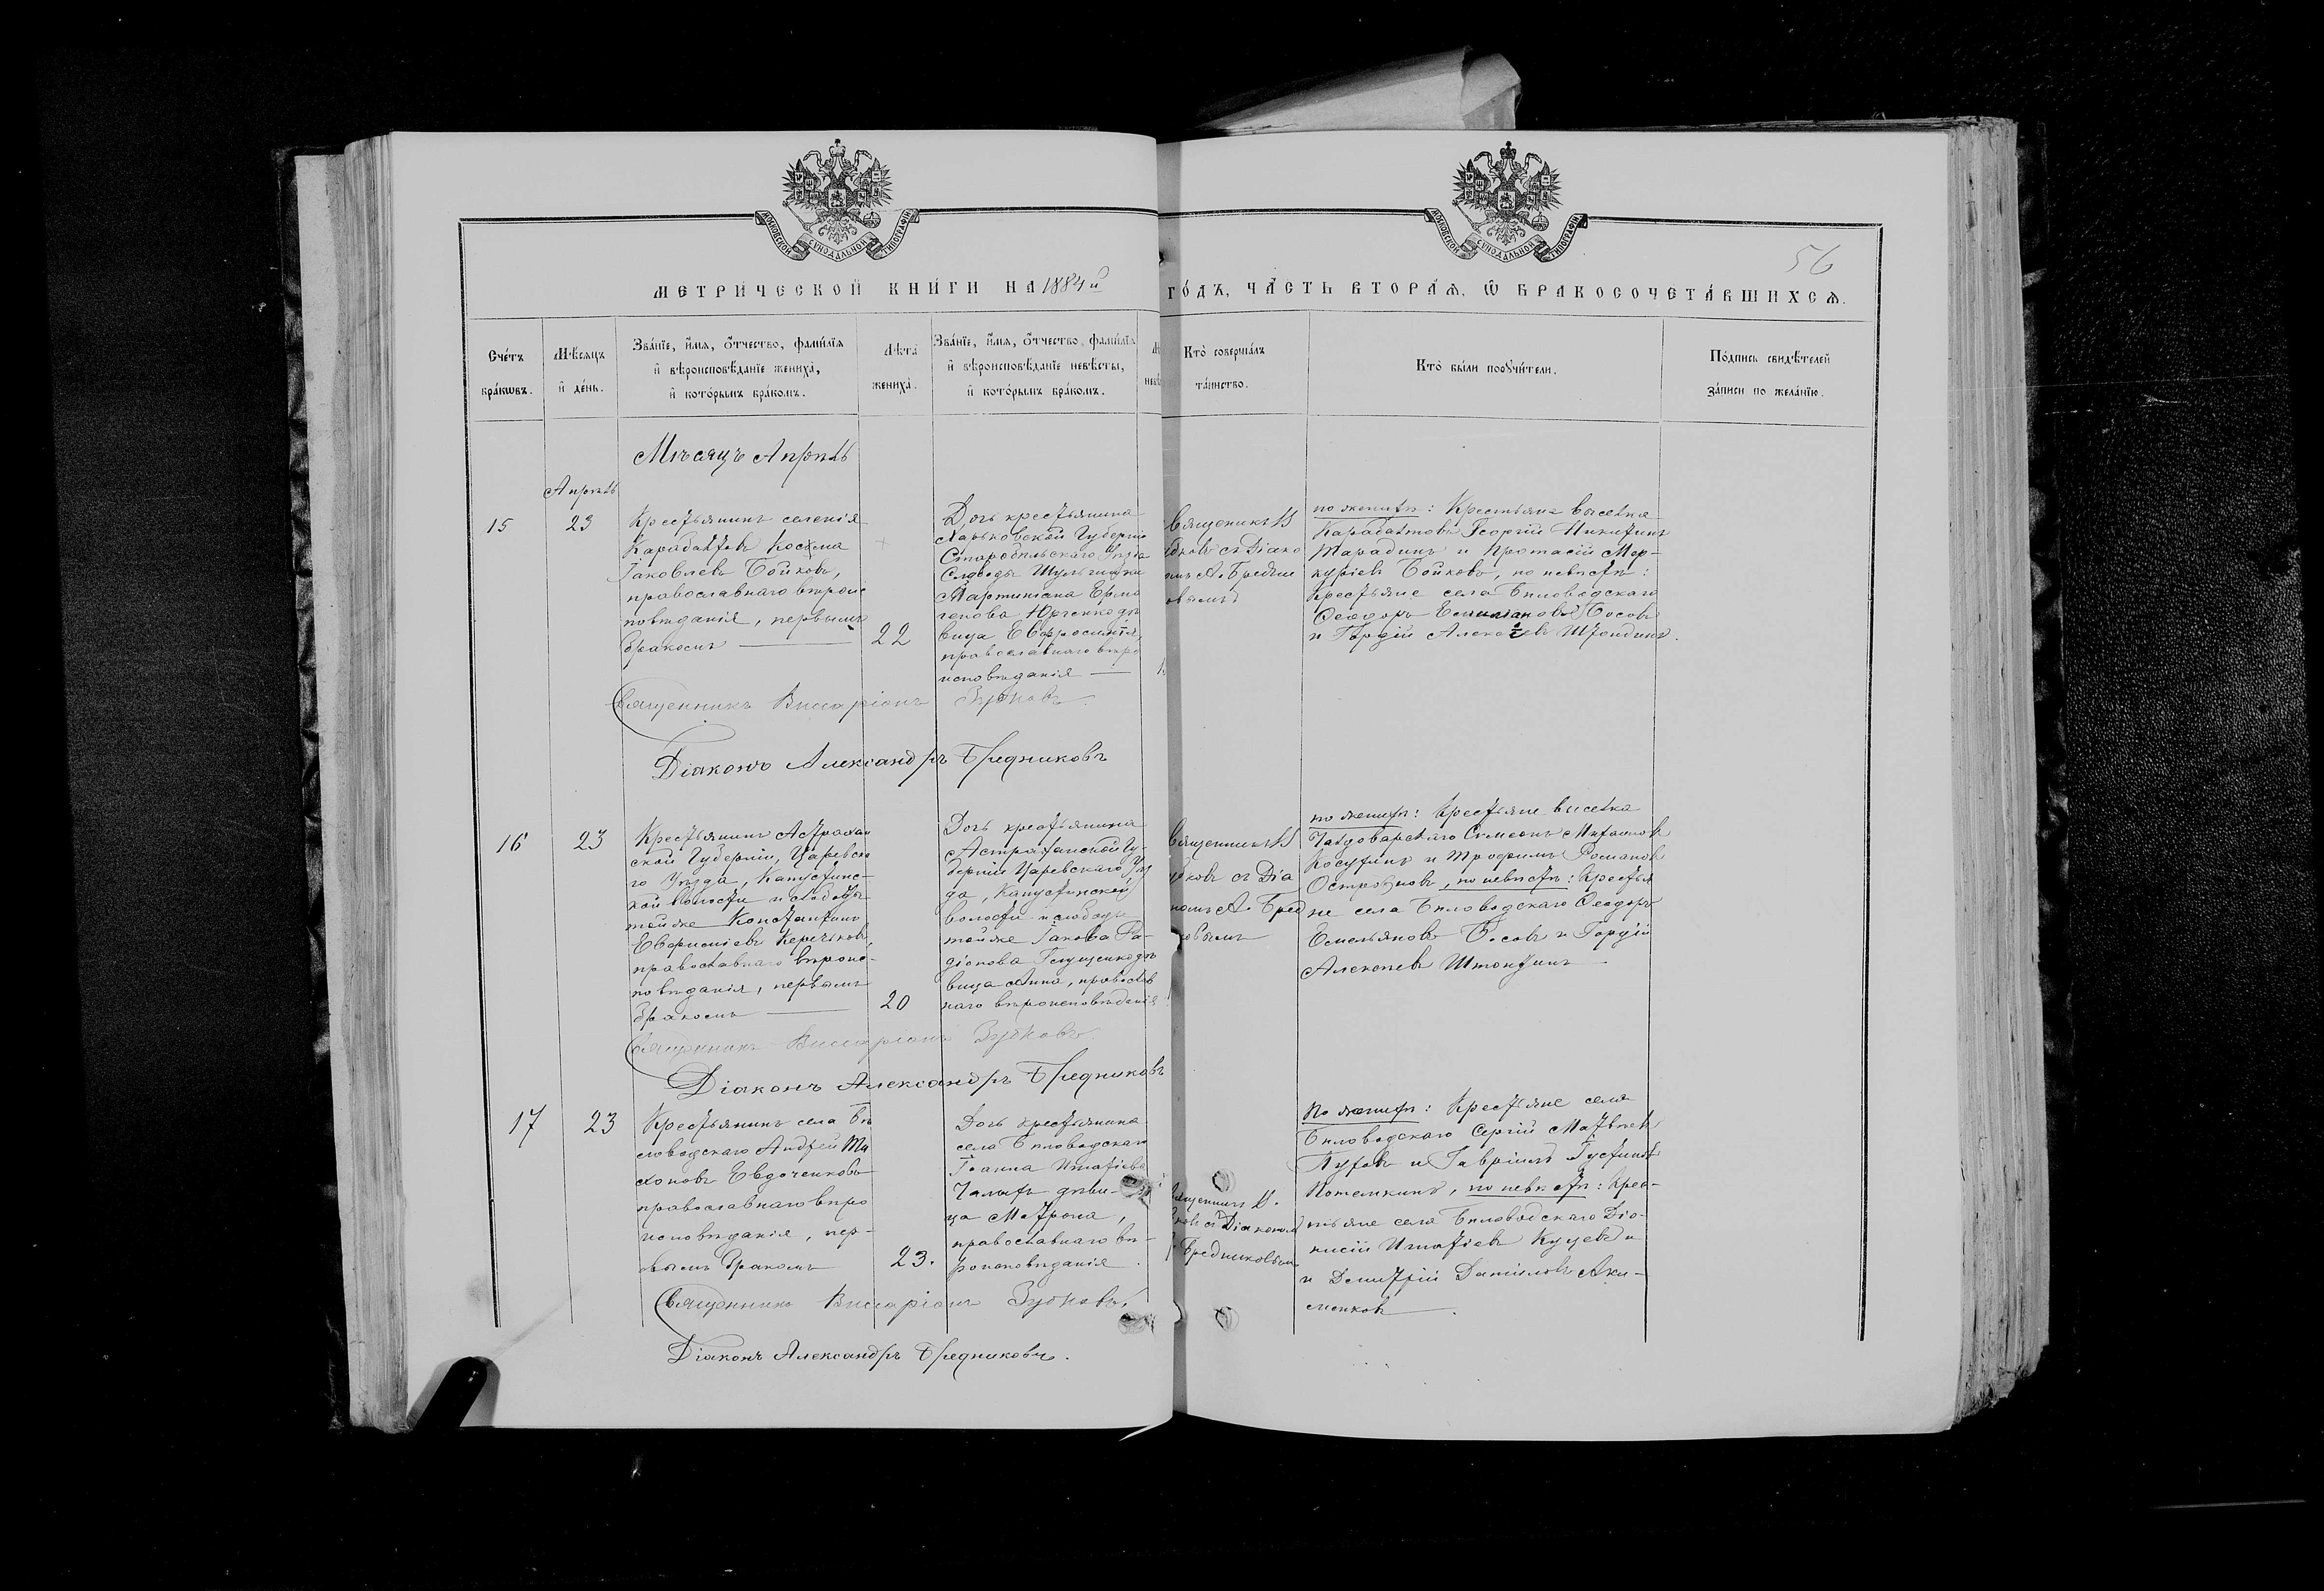 МОСКОВСКОЙ СѴНОДАЛЬНОЙ ТИПОГРАФІИ
МОСКОВСКОЙ СѴНОДАЛЬНОЙ ТИПОГРАФІИ
56
МЕТРИЧЕСКОЙ КНИГИ НА 1884й
ГОДЪ, ЧАСТЬ ВТОРАЯ, Ѡ БРАКОСОЧЕТАВШИХСЯ.
Счетъ
браковъ.
Мѣсяцъ
и день.
Званіе, имя, отчество, фамилія
и вѣроисповѣданіе жениха,
и которымъ бракомъ.
Лѣта
жениха.
Званіе, имя, отчество, фамилія
и вѣроисповѣданіе невѣсты,
и которымъ бракомъ.
Кто совершалъ
таинство.
Кто были поручители.
Подпись свидѣтелей
записи по желанію.
Мѣсяцъ Апрѣль
Апрѣль
15
23
Крестьянинъ селенія
Карабалтовъ Косма
Іаковлевъ Бойковъ,
православнаго вѣроис
повѣданія, первымъ
бракомъ
22
Дочь крестьянина
Харьковской Губерніи
Старобѣльскаго Уѣзда
Слободы Шульгинки
Мартиніана Ермо
генова Юрченко дѣ
вица Евфросинія,
православнаго вѣро
исповѣданія
Священникъ В
бковъ съ Діако
омъ А. Бредни
овымъ
по женихѣ: Крестьяне выселка
Карабалтова Георгій Никитинъ
Тарадинъ и Протасій Мер-
куріевъ Бойковъ, по невѣстѣ:
Крестьяне села Бѣловодскаго
Ѳеодоръ Емиліановъ Босовъ
и Гордій Алексѣевъ Штондинъ.
Священникъ Висаріонъ Зубковъ.
Діаконъ Александръ Бредниковъ
16
23
Крестьянинъ Астрахан
ской Губерніи, Царевска
го Уѣзда, Капустинс-
кой волости и слободы
тойже Константинъ
Евфиміевъ
православнаго вѣроис-
повѣданія, первымъ
бракомъ
20
Дочь крестьянина
Астраханской Гу-
берніи Царевскаго Уѣз
да, Капустинской
волости и слободы
тойже Іакова Ра-
діонова дѣ
вица Анна, православ
наго вѣроисповѣданія
Священникъ В
бковъ съ Діа
номъ А. Бред
ковымъ
по женихѣ: Крестьяне выселка
Чалдоварскаго Симеонъ Михаиловъ
Косухинъ и Трофимъ Романовъ
Остроуховъ, по невѣстѣ: Крестья
не села Бѣловодскаго Ѳеодоръ
Емельяновъ Босовъ и Гордій
Алексѣевъ Штондинъ
Священникъ Висаріонъ Зубковъ.
Діаконъ Александръ Бредниковъ
17
23
Крестьянинъ села Бѣ
ловодскаго Андрей Ти
хоновъ Евдоченковъ
православнаго вѣро
исповѣданія, пер-
вымъ бракомъ
23.
Дочь крестьянина
села Бѣловодскаго
Іоанна Игнатіева
Чалыхъ дѣви-
ца Матрона,
православнаго вѣ-
роисповѣданія.
щенникъ В.
ковъ съ Діакономъ
Бредниковымъ
По женихѣ: Крестьяне села
Бѣловодскаго Сергій Матвѣевъ
Пуховъ и Гавріилъ Густиновъ
Потемкинъ, по невѣстѣ: Крес-
тьяне села Бѣловодскаго Діо-
нисій Игнатіевъ
и Димитрій Даниловъ Аки-
менковъ.
Священникъ Висаріонъ Зубковъ.
Діаконъ Александръ Бредниковъ.